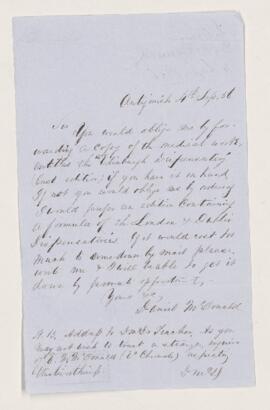 Antigonish 4th Sep. 56
Sir You would oblige me by for-
warding a copy of the medical work
entitled the "Edinburgh Dispensatory"
last edition; if you have it on hand
If not you would oblige me by ordering
I would prefer an edition containing
a formulae of the London & Dublin
Dispensatories. If it would cost too
much to come down by mail please
write me & I will be able to get it
down by private opportunity,
Yours &c,
Daniel McDonald
N.B. Address to Teacher. As you
may not wish to trust a stranger, inquire
of McDonald respecting
D McD